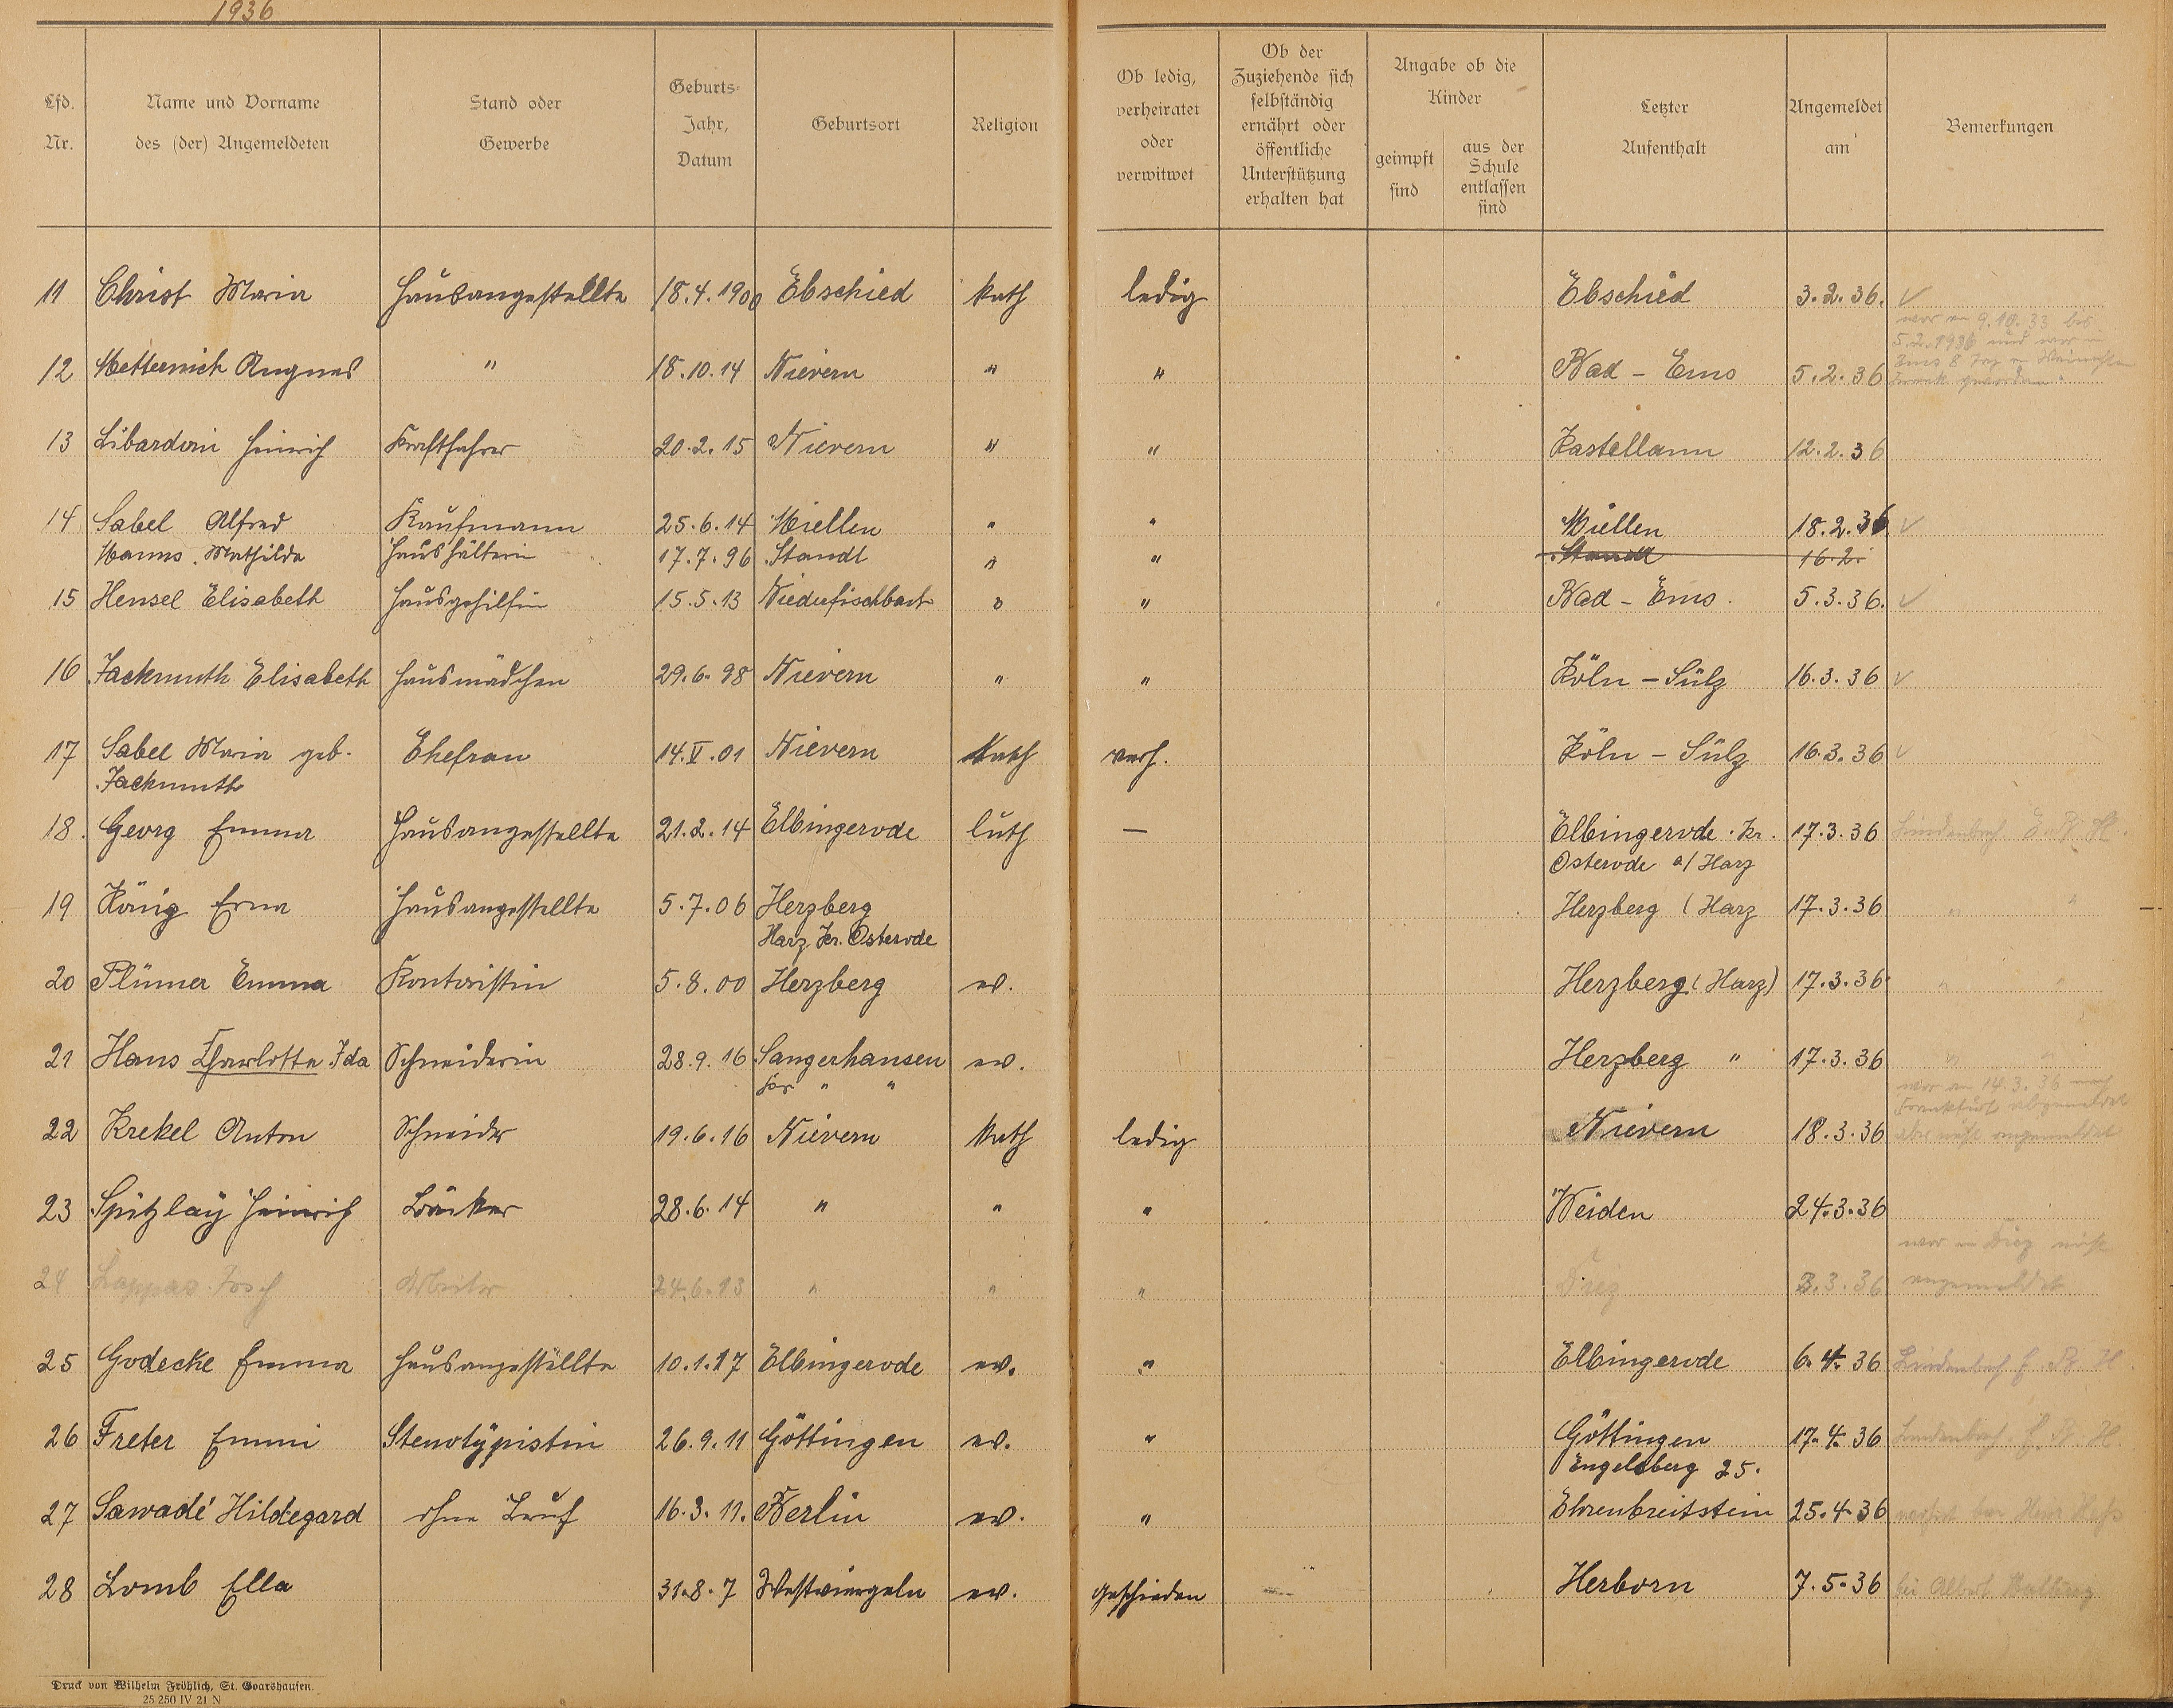 1936
Lfd. Nr.
Name und Vorname des (der) Angemeldeten
Stand oder Gewerbe
Geburts- Jahr, Datum
Geburtsort
Religion
Ob ledig, verheiratet oder verwitwet
Ob der Zuziehende sich selbständig ernährt oder öffentliche Unterstützung erhalten hat
Angabe ob die Kinder
geimpft sind
aus der Schule entlassen sind
Letzter Aufenthalt
Angemeldet am
Bemerkungen
11 Christ Maria Hausangestellte 18.4.1900 Ebschied kath ledig Ebschied 3.2.36. ✓
war in 9.10.33 bis
5.2.1936 und war in
12 Metternich Angnes " 18.10.14 Nievern " " Bad-Ems 5.2.36
13 Libardoni Heinrich Kraftfahrer 20.2.15 Nievern " " Kastellaun 12.2.36
14 Sabel Alfred Kaufmann 25.6.14 Miellen " " Miellen 18.2.36. ✓
Manns. Mathilde Haushälterin 17.7.96 Standt " " Standt 16.2.
15 Hensel Elisabeth Hausgehilfin 15.5.13 Niederfischbach " " Bad-Ems. 5.3.36. ✓
16 Jackmuth Elisabeth Hausmädchen 29.6.98 Nievern " " Köln-Sülz 16.3.36 ✓
17 Sabel Maria geb. Ehefrau 14.V.01 Nievern Kath verh. Köln-Sülz 16.3.36 ✓
Jackmuth
18. Georg Emma Hausangestellte 21.2.14 Elbingerode luth — Elbingerode. Kr. 17.3.36 Lindenbach E. B. H.
Osterode a/Harz
19 König Erna Hausangestellte 5.7.06 Herzberg Herzberg (Harz 17.3.36 " "
Harz, Kr. Osterode
20 Plümer Emma Kontoristin 5.8.00 Herzberg ev. Herzberg (Harz) 17.3.36 " "
21 Hans Charlotte Ida Schneiderin 28.9.16 Sangerhausen ev. Herzberg " 17.3.36 "
" "
war am 14.3.36 nach
Frankfurt abgemeldet
22 Krekel Anton Schneider 19.6.16 Nievern Kath ledig Nievern 18.3.36 aber nicht angemeldet
23 Spitzlay Heinrich Bäcker 28.6.14 " " " Weiden 24.3.36
war in Diez nicht
24 Lappas Josef Arbeiter 24.6.13 " " " Diez 3.3.36 angemeldet
25 Godecke Emma Hausangestellte 10.1.17 Elbingerode ev. " Elbingerode 6.4.36 Lindenbach E. B. H
26 Freter Emmi Stenotypistin 26.9.11 Göttingen ev. " Göttingen 17.4.36 Lindenbach. E. B. H.
Engelsberg 25.
27 Sawadé Hildegard ohne Beruf 16.3.11. Berlin ev. " Ehrenbreitstein 25.4.36
28 Lomb Ella 31.8.7 ev. geschieden Herborn 7.5.36 bei Albert
Druck von Wilhelm Fröhlich, St. Goarshausen.
25 250 IV 21 N